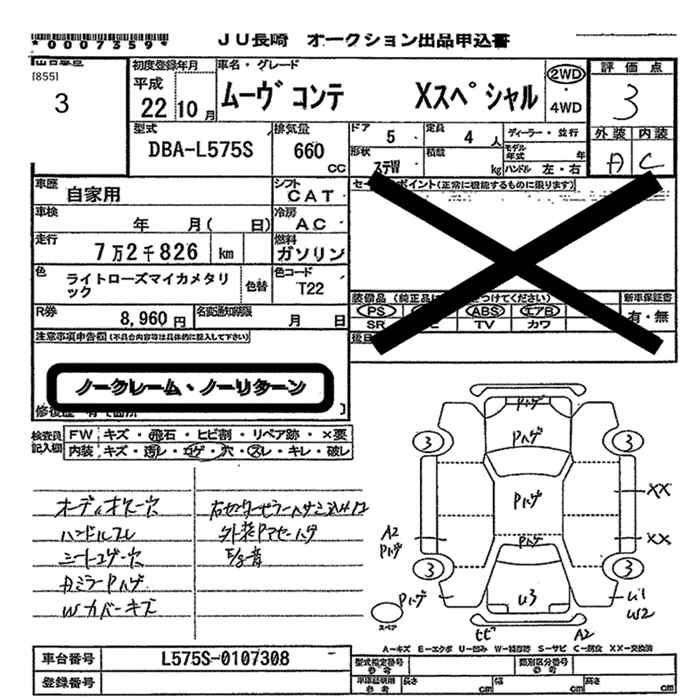 *0007359* JU長崎 オークション出品申込書
[855]
3
初度登録年月
平成
22 10 月
車名・グレード
ムーヴ コンテ Xスペシャル
2WD
4WD
評価点
3
外装 内装
A C
型式
DBA-L575S
排気量
660 CC
ドア 5
定員 4 人
ディーラー・並行
形状 ステW
積載 kg
モデル年式 年
ハンドル 左・右
車歴
自家用
シフト
CAT
セ ポイント(正常に機能するものに限ります)
車検
年 月( 日)
冷房
AC
走行
7万2千826 km
燃料
ガソリン
色
ライトローズマイカメタリック
色替
色コード
T22
装備品 (純正品に つけてください)
新車保証書
有・無
PS ABS エアB
SR TV カワ
R券
8,960 円
名変通知期限
月 日
注意事項申告欄(不具合内容等は具体的に記入して下さい)
ノークレーム・ノーリターン
検査員記入欄
FW キズ・飛石・ヒビ割・リペア跡・×要
内装 キズ・汚レ・コゲ・穴・スレ・キレ・破レ
オーディオスレ穴
ハンドルスレ
シートコゲ穴
AミラーPハゲ
Wカバーキズ
外装Pマセーハゲ
Pハゲ
Pハゲ
Pハゲ
Pハゲ
3 3
XX
A2
Pハゲ
XX
3 3
Pハゲ
スペア
U3
U1
W2
ヒビ A2
A−キズ E−エクボ U−凹み W−補修跡 S−サビ C−腐食 XX−交換済
車台番号 L575S-0107308
登録番号
型式指定番号
参考
類別区分番号
参考
車庫証明用
参考
長さ cm
幅 cm
高さ cm